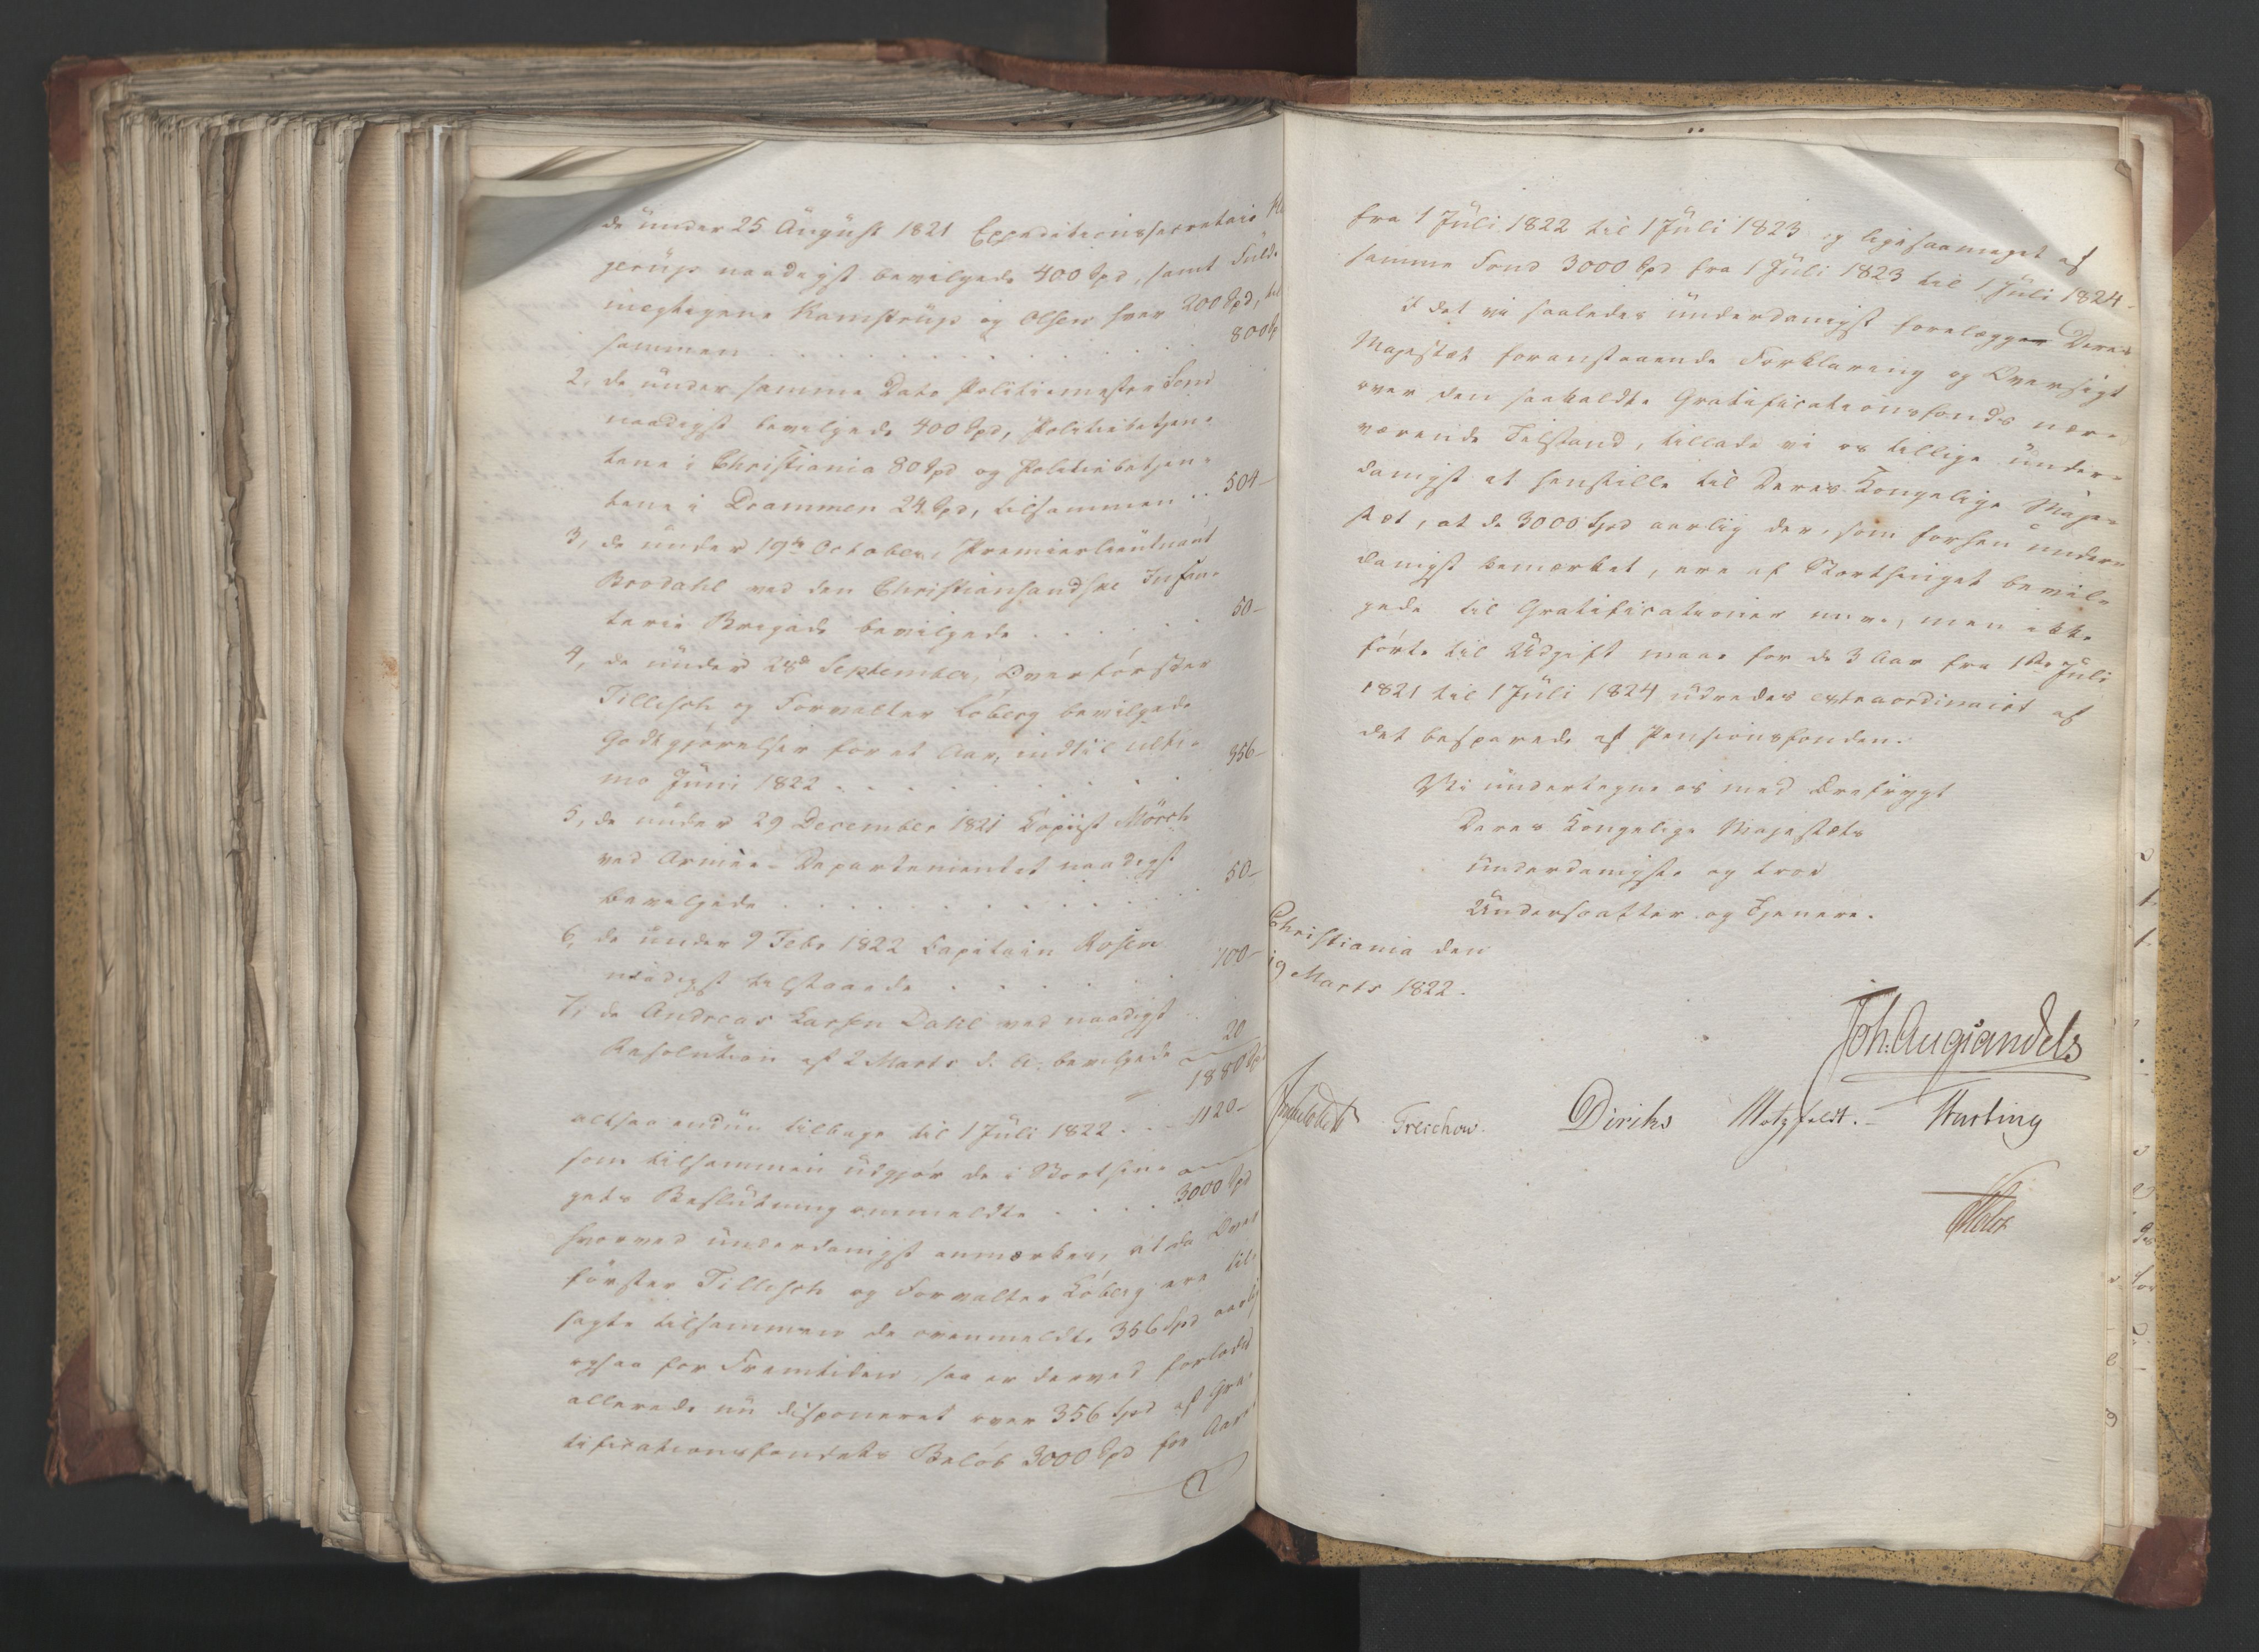 de under 25 August 1821 Expeditionssecretair
gerup naadigst bevilgede 400 Spd, samt Fuld-
mægtigene Ramstrup og Olsen hver 200 Spd, til
sammen . . . . . . . . . . . 800 Sp
2, de under samme Dato Politiemester
naadigst bevilgede 400 Spd, Politiebetjen-
tene i Christiania 80 Spd og Politiebetjen-
tene i Drammen 24 Spd, tilsammen .. 504-
3, de under 19de October, Premierlieutnant
Brodahl ved den Christiansandske Infan-
terie Brigade bevilgede . . . . . . 50-
4, de under 28de September, Overförster
Tillisch og Forvalter Loberg bevilgede
Godtgjørelser for et Aar, indtil ulti-
mo Juni 1822 . . . . . . . . 356-
5, de under 29 December 1821 Copiist Mörch
ved Armee-Departementet naadigst
bevilgede . . . . . . . . . . 50-
6, de under 9 Febr 1822 Capitain Rosen
naadigst tilstaaede . . . . . . 100-
7, de Andreas Larsen Dahl ved naadigst
Resolution af 2 Marts d. A. bevilgede 20
1880 Sp
altsaa endnu tilbage til 1 Juli 1822 . . 1120-
som tilsammen udgjør de i Storthin-
gets Beslutning ommeldte . . . . 3000 Spd
hvorved underdanigst anmærkes, at da Over
förster Tillisch og Forvalter Loberg ere til-
sagte tilsammen de ovenmeldte 356 Spd aarlig
ogsaa for Fremtiden, saa er derved forlods
allerede nu disponeret over 356 Spd af Gra-
tificationsfondets Beløb 3000 Spd for Aaret
fra 1 Juli 1822 til 1 Juli 1823 og ligesaameget af
samme Fond 3000 Spd fra 1 Juli 1823 til 1 Juli 1824.
I det vi saaledes underdanigst forelægger Deres
Majestæt foranstaaende Forklaring og Oversigt
over den saakaldte Gratificationsfonds nær-
værende Tilstand, tillade vi os tillige under-
danigst at henstille til Deres Kongelige Maje-
stæt, at de 3000 Spd aarlig der, som forhen under-
danigst bemærket, ere af Storthinget bevil-
gede til Gratificationer men ikke
førte til Udgift maae for de 3 Aar fra 1ste Juli
1821 til 1 Juli 1824 udredes extraordinairt af
det besparede af Pensionsfonden.
Vi undertegne os med Ærefrygt
Deres Kongelige Majestæts
underdanigste og troe
Undersaatter og Tjenere.
Christiania den
19 Marts 1822.
Joh: Aug Sandels
Treschow. Diriks Motzfeldt. Hasting
Holst